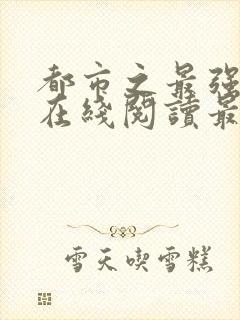 都市之最强
在綫閱讀最
雪天喫雪糕